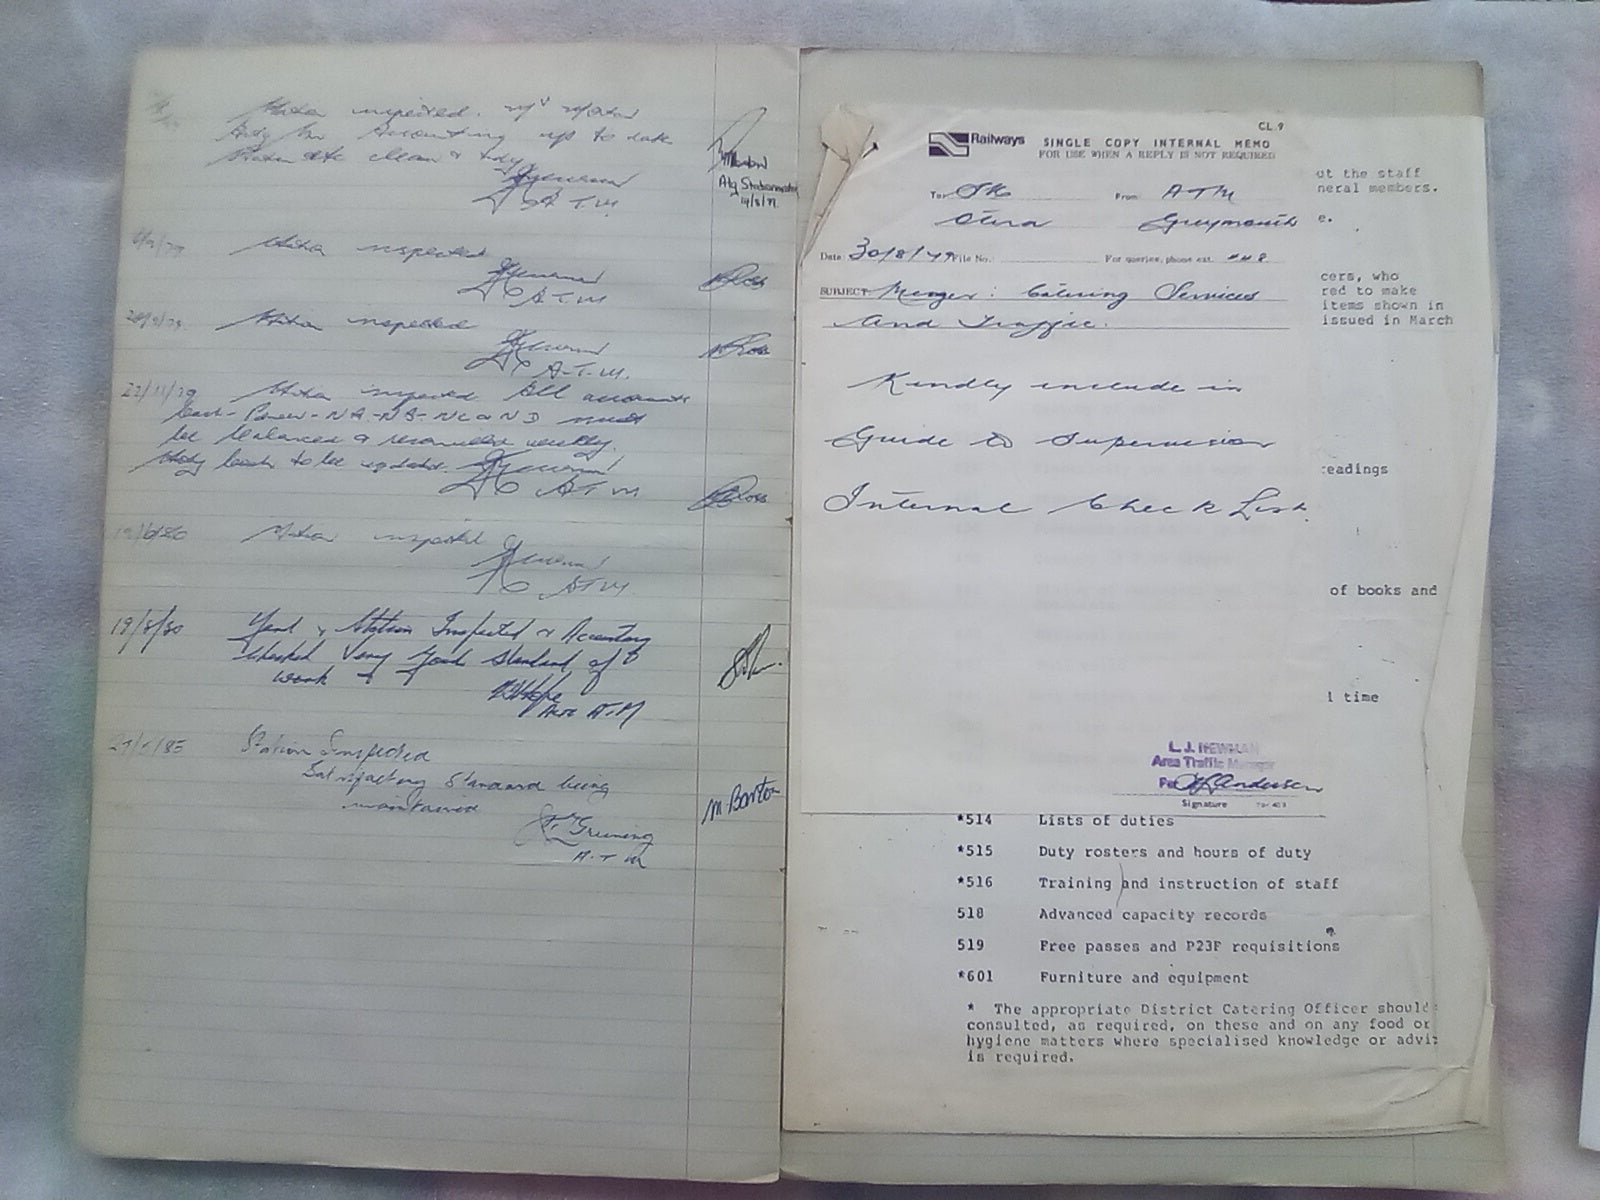 Station inspected.
up to date
Station etc clean & tidy.
A.T.M.
Atg Stationmaster
Station inspected
A.T.M
Ross
Station inspected
A.T.M.
Ross
22/11/79 Station inspected All accounts
NA - NB - NC & ND must
be balanced & reconciled weekly.
books to be updated.
A.T.M
Ross
Station inspected
A.T.M.
19/8/80 Yard & Station Inspected & Accounting
Checked Very Good Standard of
work
A.T.M
Station Inspected
Satisfactory Standard being
maintained
M Barton
Gruning
A.T.M
CL.9
Railways SINGLE COPY INTERNAL MEMO
FOR USE WHEN A REPLY IS NOT REQUIRED
To: SM From: ATM
Otira Greymouth
Date: 30/8/79 File No.: For queries, phone ext.
SUBJECT: Merger: Catering Services
And Traffic.
Kindly include in
Guide to Supervision
Internal Check List.
L. J. NEWMAN
Area Traffic Manager
Per Anderson
Signature
ut the staff
neral members.
e.
cers, who
red to make
items shown in
issued in March
eadings
of books and
l time
*514 Lists of duties
*515 Duty rosters and hours of duty
*516 Training and instruction of staff
518 Advanced capacity records
519 Free passes and P23F requisitions
*601 Furniture and equipment
* The appropriate District Catering Officer should
consulted, as required, on these and on any food or
hygiene matters where specialised knowledge or advi
is required.